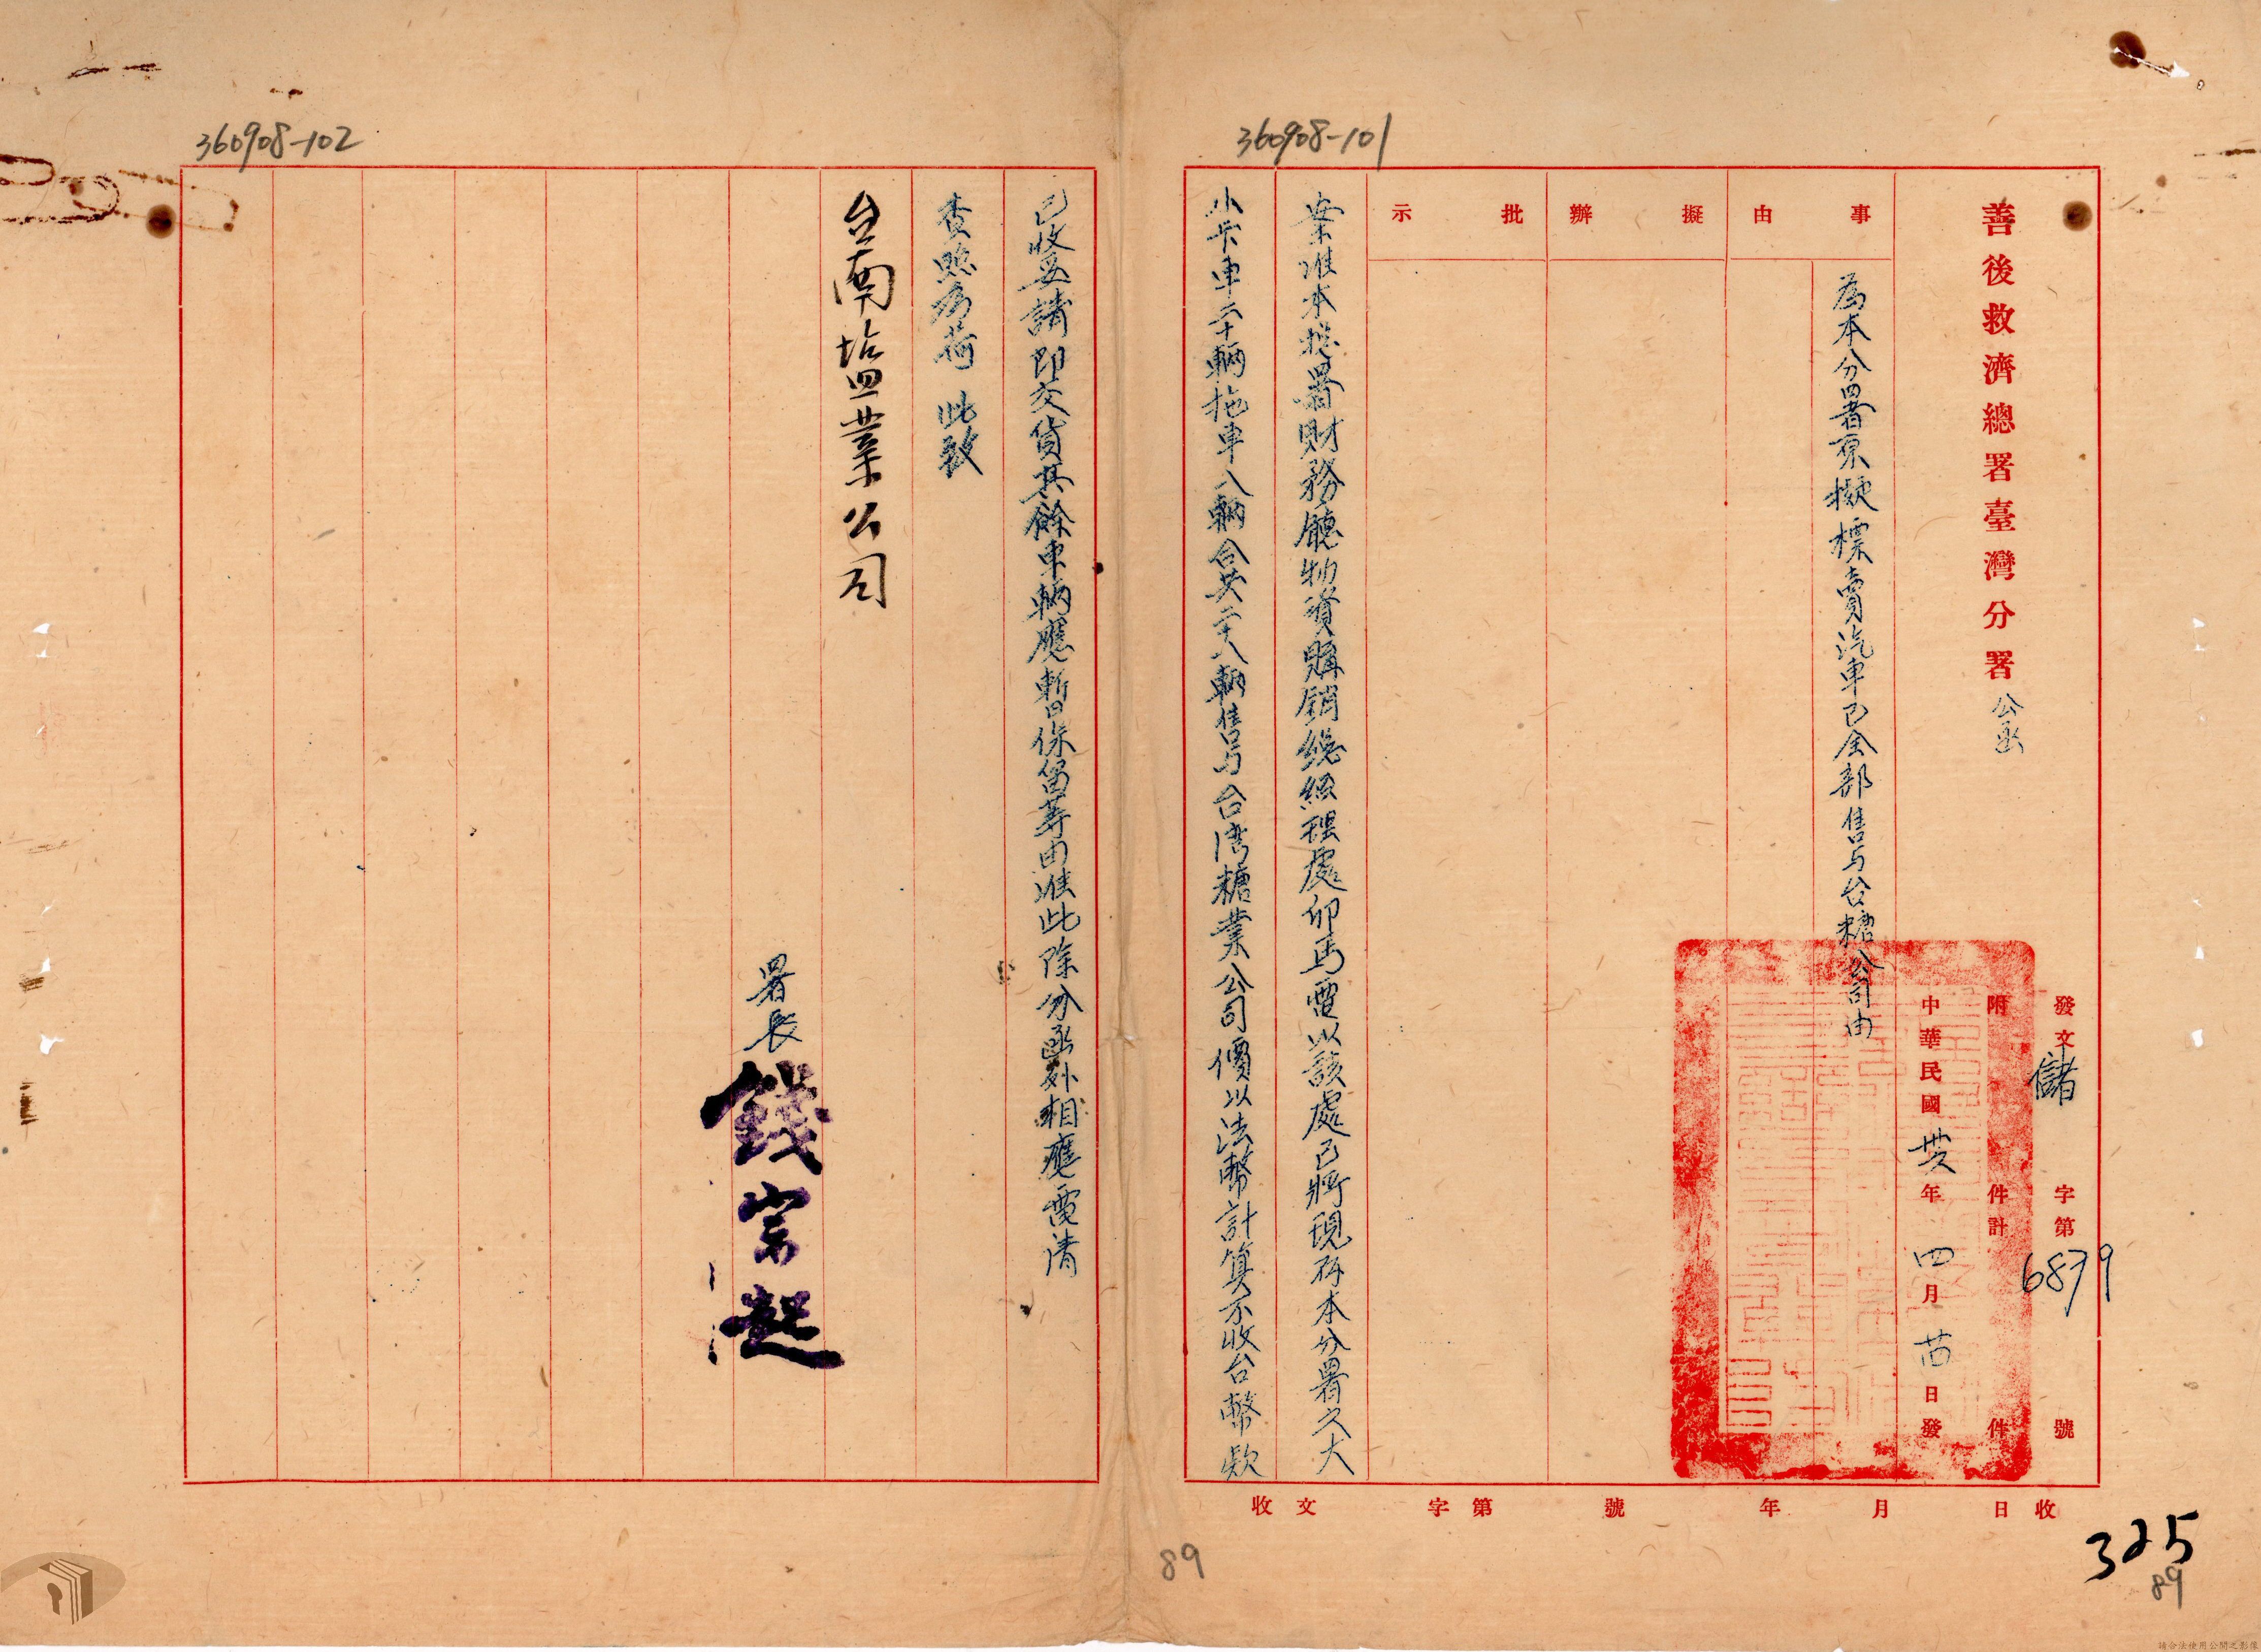 360908-101
善後救濟總署臺灣分署公函
發文儲字第6879號
附件計件
中華民國卅六年四月廿四日發
事由
為本分署原擬標賣汽車已全部售与台糖公司由
擬辦
批示
案准本總署財務廳物資購銷總經理處卯馬電以該處已將現存本分署之大
小卡車二十輛拖車八輛合共二十八輛售与台湾糖業公司價以法幣計算不收台幣欵
收文字第號年月日收
325
89
89
360908-102
已收妥請即交貨其餘車輛應暫保留等由准此除分函外相應電請
查照為荷此致
台南塩業公司
署長錢宗起
請合法使用公開之影像